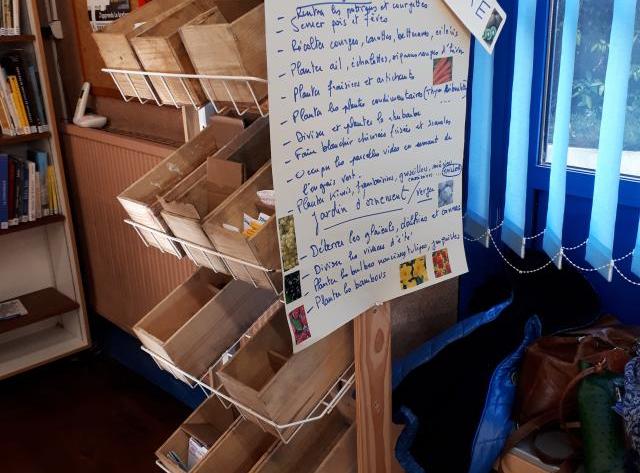 - Rentrer les potirons et courgettes
- Semer pois et fèves
- Récolter courges, carottes, betteraves, céleris
- Planter ail, échalottes, oignons rouges d'hiver
- Planter fraisiers et artichauts
- Planter les plantes condimentaires (Thym
- Diviser et planter la rhubarbe ...
- Faire blanchir chicorée frisée et scaroles
- Occuper les parcelles vides en semant de
l'engrais vert.
- Planter kiwis, framboisiers, groseillers,
cassissiers
Jardin d'ornement / verger
- Déterrer les glaïeuls, dahlias et cannas
- Diviser les vivaces d'été
- Planter les bulbes narcisses, tulipes, jacinthes
- Planter les bambous